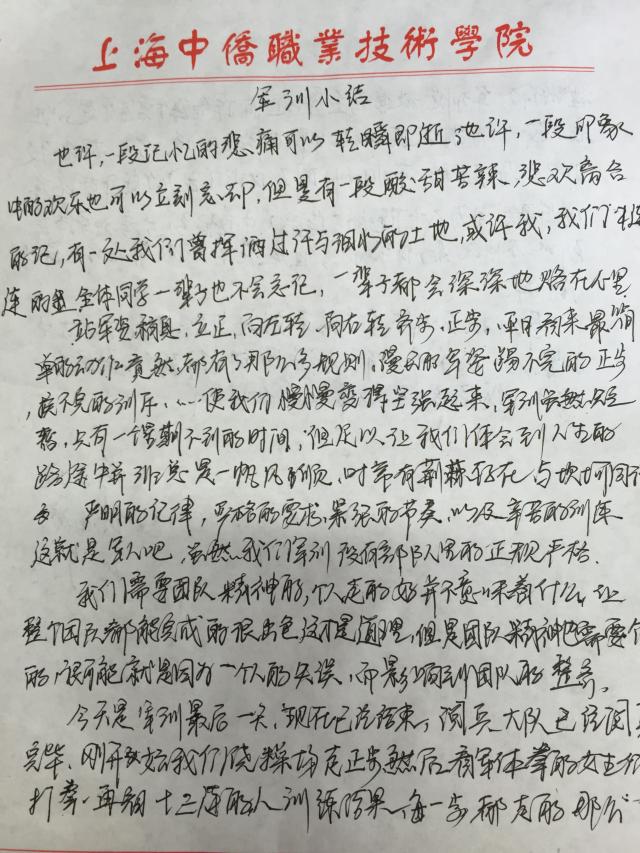 上海中僑職業技術學院
军训小结
也许,一段记忆的悲痛可以转瞬即逝,也许,一段印象
中的欢乐也可以立刻忘却,但是有一段酸甜苦辣,悲欢离合
的记,有一处我们曾挥洒过汗与泪水的土地,或许我,我们
连的 全体同学一辈子也不会忘记,一辈子都会深深地烙在心里
站军姿 立正,向左转 向右转 齐步,正步,平日看来最简
单的动作竟然都有了那么多规则,漫长的军姿 踢不完的正步
的训斥,……使我们慢慢变得坚强起来,军训虽然短
暂,只有一个星期不到的时间,但足以让我们体会到人生的
路途中并非总是一帆风顺,时常有荆棘 与坎坷同行
严明的纪律,严格的要求,紧张的节奏,以及辛苦的训练
这就是军人吧,虽然我们军训没有部队里的正规严格.
我们需要团队精神的,个人走的好并不意味着什么,让
整个团队都能完成的很出色这才是道理,但是团队精神也需要个
的,很可能就是因为一个人的失误,而影响到团队的整齐。
今天是军训最后一天,现在已经结束,阅兵大队已经阅
完毕,刚开始我们绕操场走正步然后看军体拳的女生们
打拳.再到十三连的人训练结果,每一步都走的那么